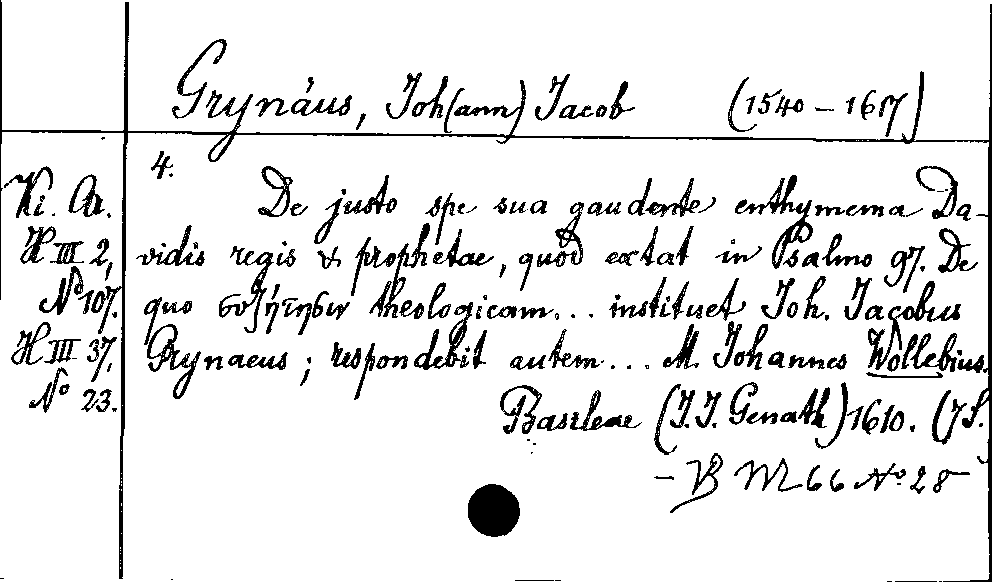 Grynäus, Joh(ann) Jacob (1540-1617)
4.
Ki. Ar. De justo spe sua gaudente enthymema Da-
H III 2, vidis regis & prophetae, quôd extat in Psalmo 97. De
No 107. quo συζήτησιν theologicam... instituet Joh. Jacobus
H III 37, Grynaeus; respondebit autem... M. Johannes Wollebius.
No 23. Basileae (J.J. Genath) 1610. (JS.
- VB M 66 No 28